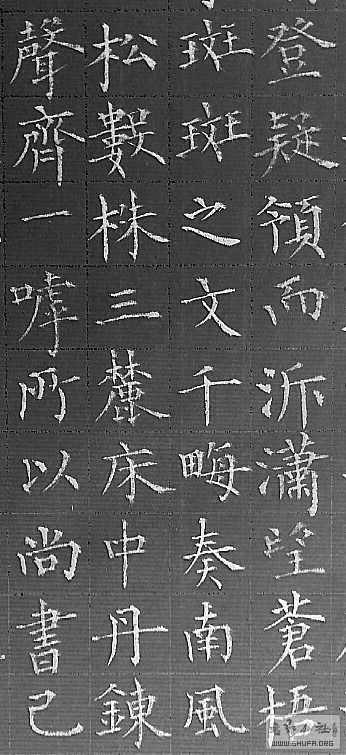 登疑領而泝瀟望蒼梧
斑斑之文千畮奏南風
松數株三麓床中丹鍊
聲齊一所以尚書已
WWW.SHUFA.ORG